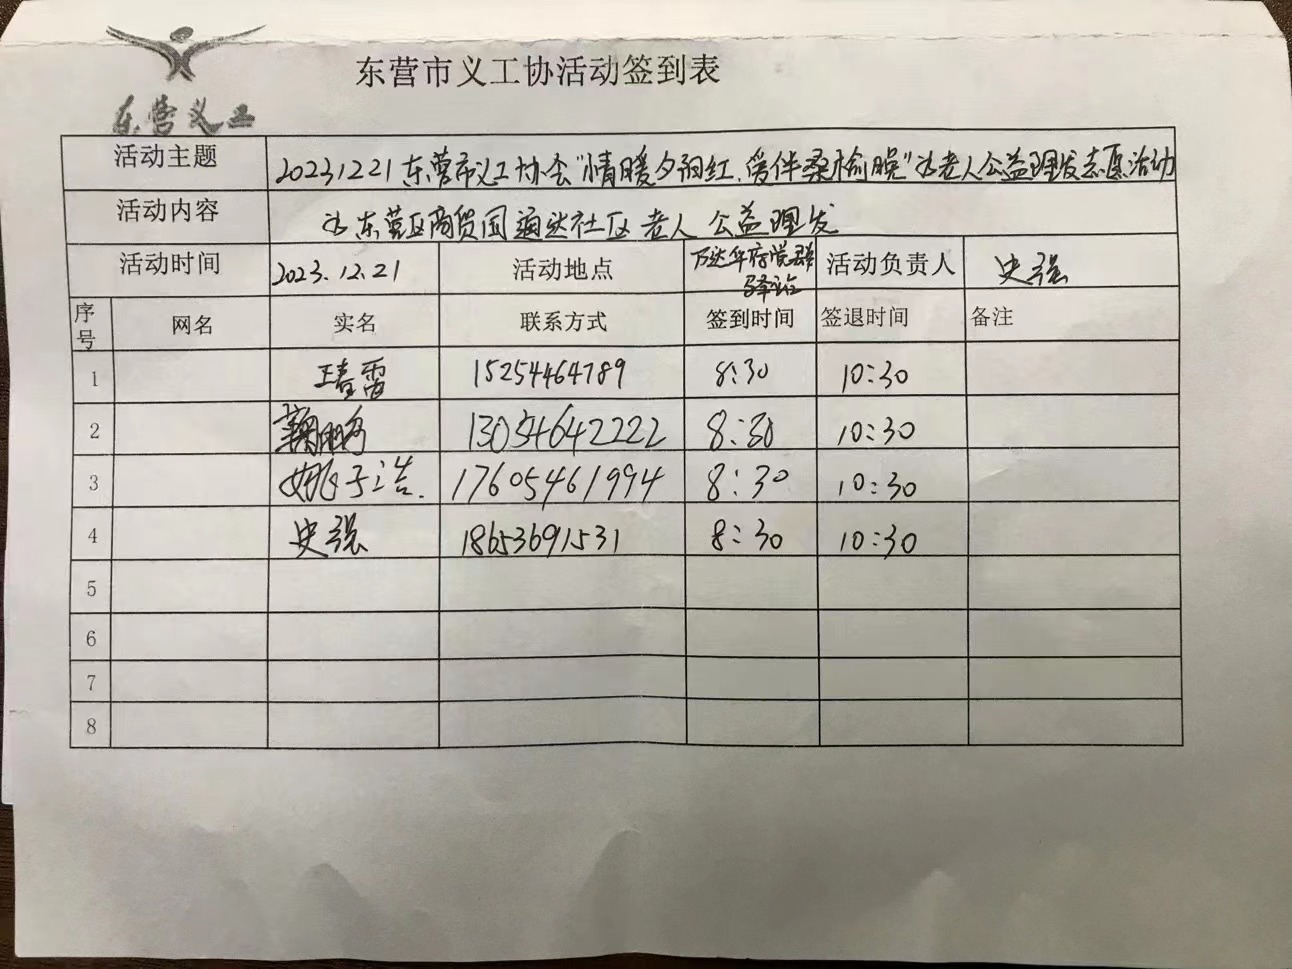 东营义工
东营市义工协活动签到表
活动主题 20231221东营市义工协会"情暖夕阳红.爱伴桑榆晚"为老人公益理发志愿活动
活动内容 为东营区商贸园通达社区老人公益理发
活动时间 2023.12.21 活动地点 万达华府党群驿站 活动负责人 史强
序号 网名 实名 联系方式 签到时间 签退时间 备注
1 王春雷 15254464789 8:30 10:30
2 鞠鹏 13054642222 8:30 10:30
3 姚子浩. 17605461994 8:30 10:30
4 史强 18653691531 8:30 10:30
5
6
7
8